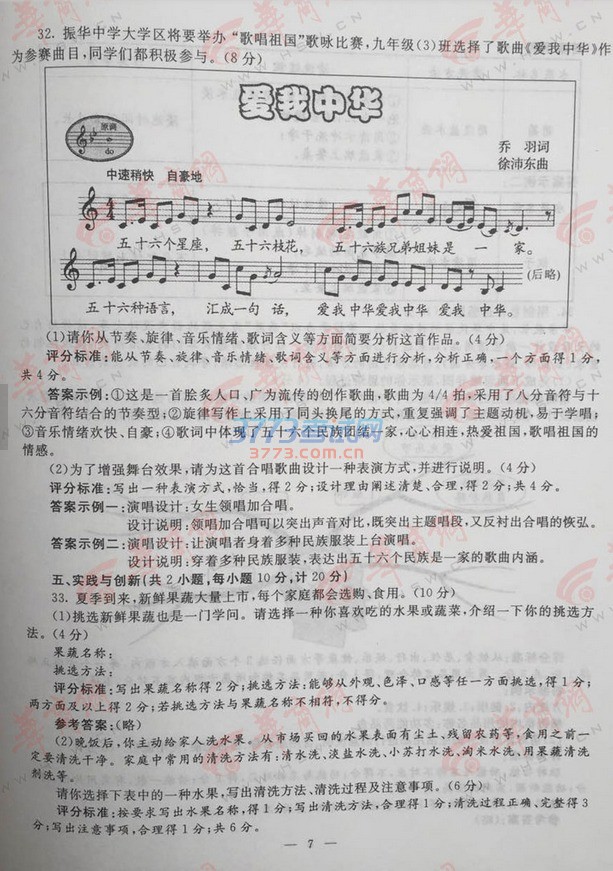 32. 振华中学大学区将要举办“歌唱祖国”歌咏比赛,九年级(3)班选择了歌曲《爱我中华》作
为参赛曲目,同学们都积极参与。(8分)
爱我中华
原调
do
乔 羽词
徐沛东曲
中速稍快 自豪地
五十六个星座, 五十六枝花, 五十六族兄弟姐妹是 一 家。
(后略)
五十六种语言, 汇成一句 话, 爱我 中华爱我中华 爱我 中华。
(1)请你从节奏、旋律、音乐情绪、歌词含义等方面简要分析这首作品。(4分)
评分标准:能从节奏、旋律、音乐情绪、歌词含义等方面进行分析,分析正确,一个方面得1分,
共4分。
答案示例:①这是一首脍炙人口、广为流传的创作歌曲,歌曲为4/4拍,采用了八分音符与十
六分音符结合的节奏型;②旋律写作上采用了同头换尾的方式,重复强调了主题动机,易于学唱;
③音乐情绪欢快、自豪;④歌词中体现了五十六个民族团结一家,心心相连,热爱祖国,歌唱祖国的
情感。
3773考试网
3773.com.cn
(2)为了增强舞台效果,请为这首合唱歌曲设计一种表演方式,并进行说明。(4分)
评分标准:写出一种表演方式,恰当,得2分;设计理由阐述清楚、合理,得2分;共4分。
答案示例一:演唱设计:女生领唱加合唱。
设计说明:领唱加合唱可以突出声音对比,既突出主题唱段,又反衬出合唱的恢弘。
答案示例二:演唱设计:让演唱者身着多种民族服装上台演唱。
设计说明:穿着多种民族服装,表达出五十六个民族是一家的歌曲内涵。
五、实践与创新(共2小题,每小题10分,计20分)
33. 夏季到来,新鲜果蔬大量上市,每个家庭都会选购、食用。(10分)
(1)挑选新鲜果蔬也是一门学问。请选择一种你喜欢吃的水果或蔬菜,介绍一下你的挑选方
法。(4分)
果蔬名称:
挑选方法:
评分标准:写出果蔬名称得2分;挑选方法:能够从外观、色泽、口感等任一方面挑选,得1分;
两方面及以上得2分;若挑选方法与果蔬名称不相符,不得分。
参考答案:(略)
(2)晚饭后,你主动给家人洗水果。从市场买回的水果表面有尘土、残留农药等,食用之前一
定要清洗干净。家庭中常用的清洗方法有:清水洗、淡盐水洗、小苏打水洗、淘米水洗、用果蔬清洗
剂洗等。
请你选择下表中的一种水果,写出清洗方法、清洗过程及注意事项。(6分)
评分标准:按要求写出水果名称,得1分;写出清洗方法,合理得1分;清洗过程正确、完整得3
分;写出注意事项,合理得1分;共6分。
— 7 —